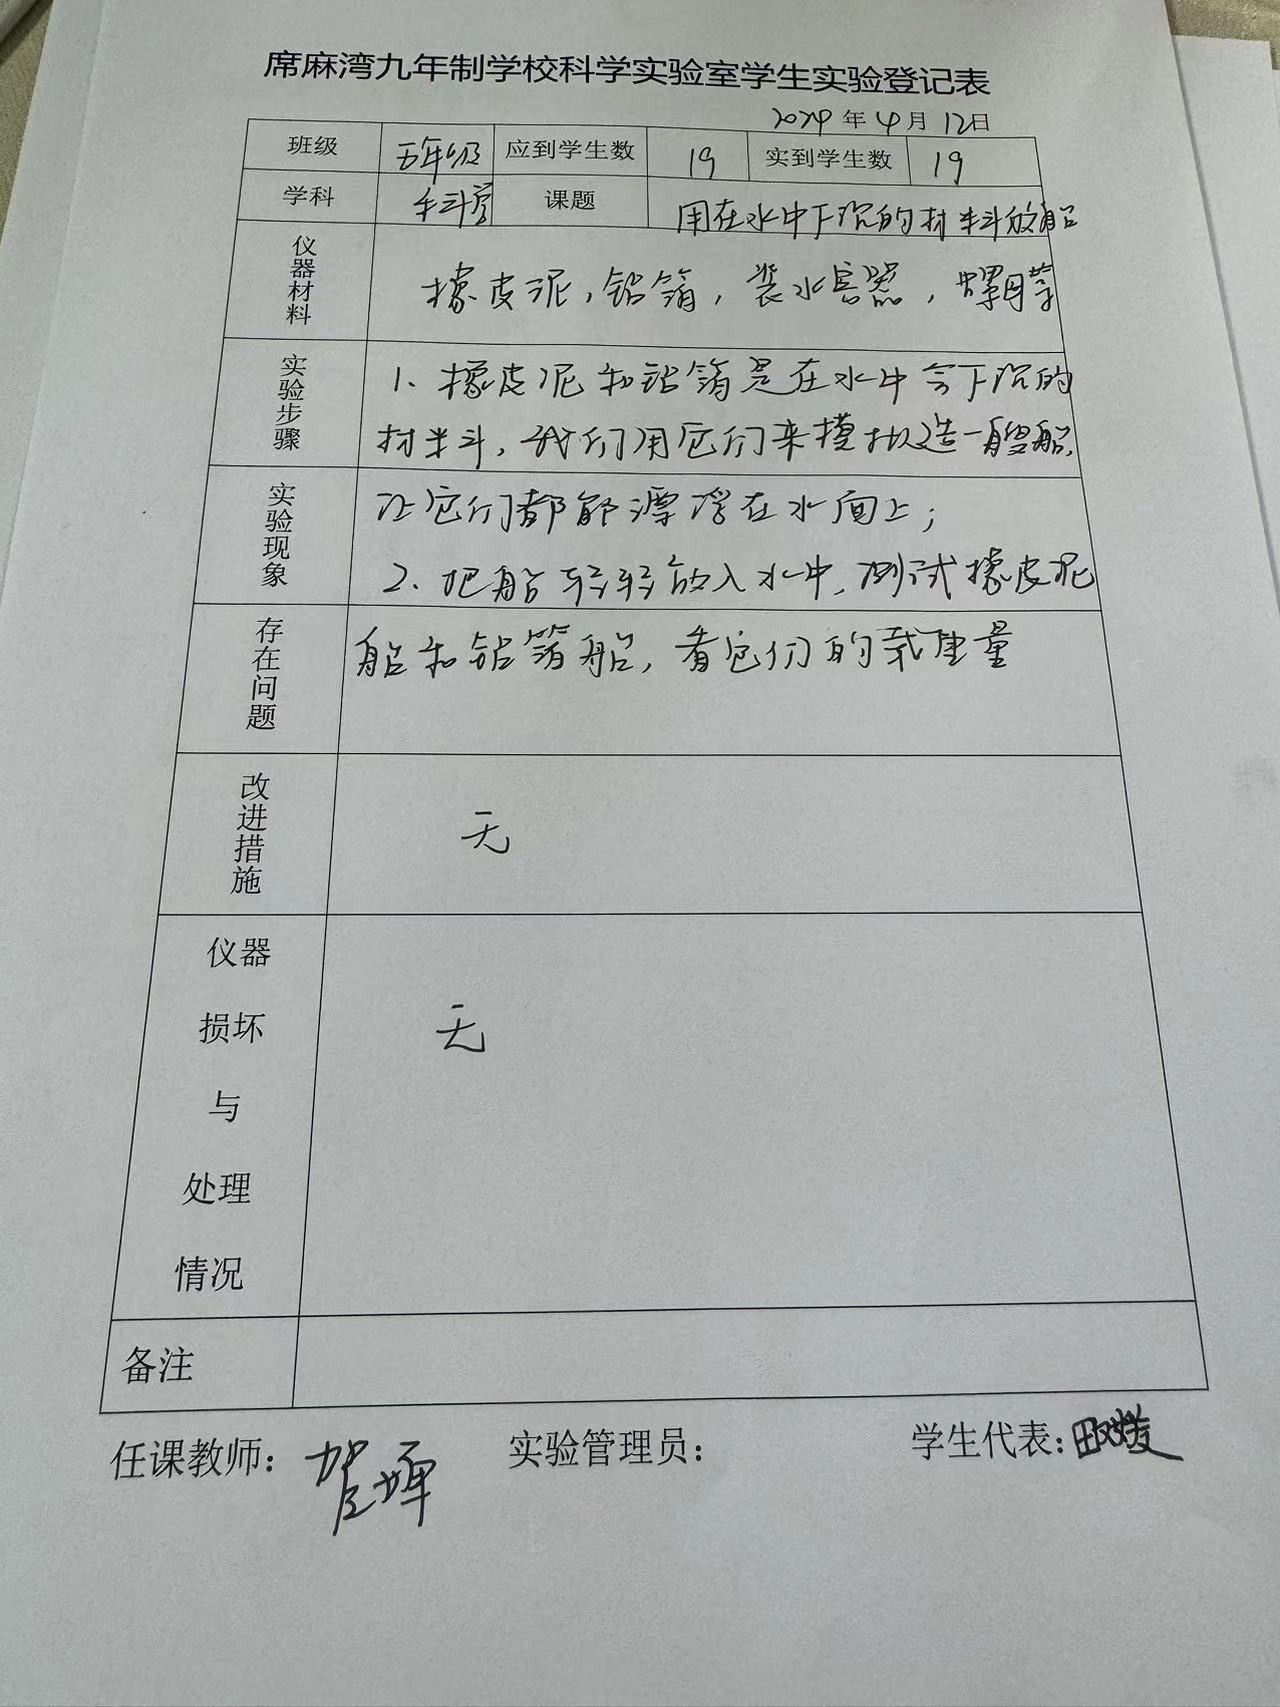 席麻湾九年制学校科学实验室学生实验登记表
2024年4月12日
班级 五年级 应到学生数 19 实到学生数 19
学科 科学 课题 用在水中下沉的材料做船
仪器材料 橡皮泥，铝箔，装水容器，螺母等
实验步骤 1、橡皮泥和铝箔是在水中会下沉的
材料，我们用它们来模拟造一艘船，
实验现象 让它们都能漂浮在水面上；
2、把船轻轻放入水中，测试橡皮泥
存在问题 船和铝箔船，看它们的载重量
改进措施 无
仪器损坏与处理情况 无
备注
任课教师： 实验管理员： 学生代表：